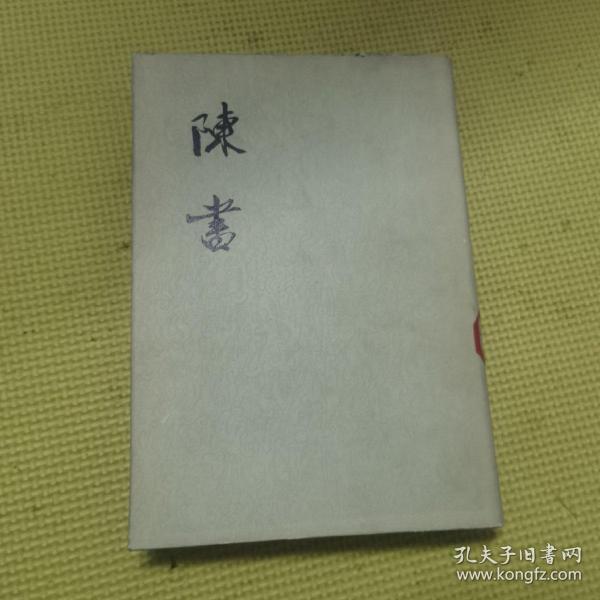 陳書
孔夫子旧書网
www.kongfz.com